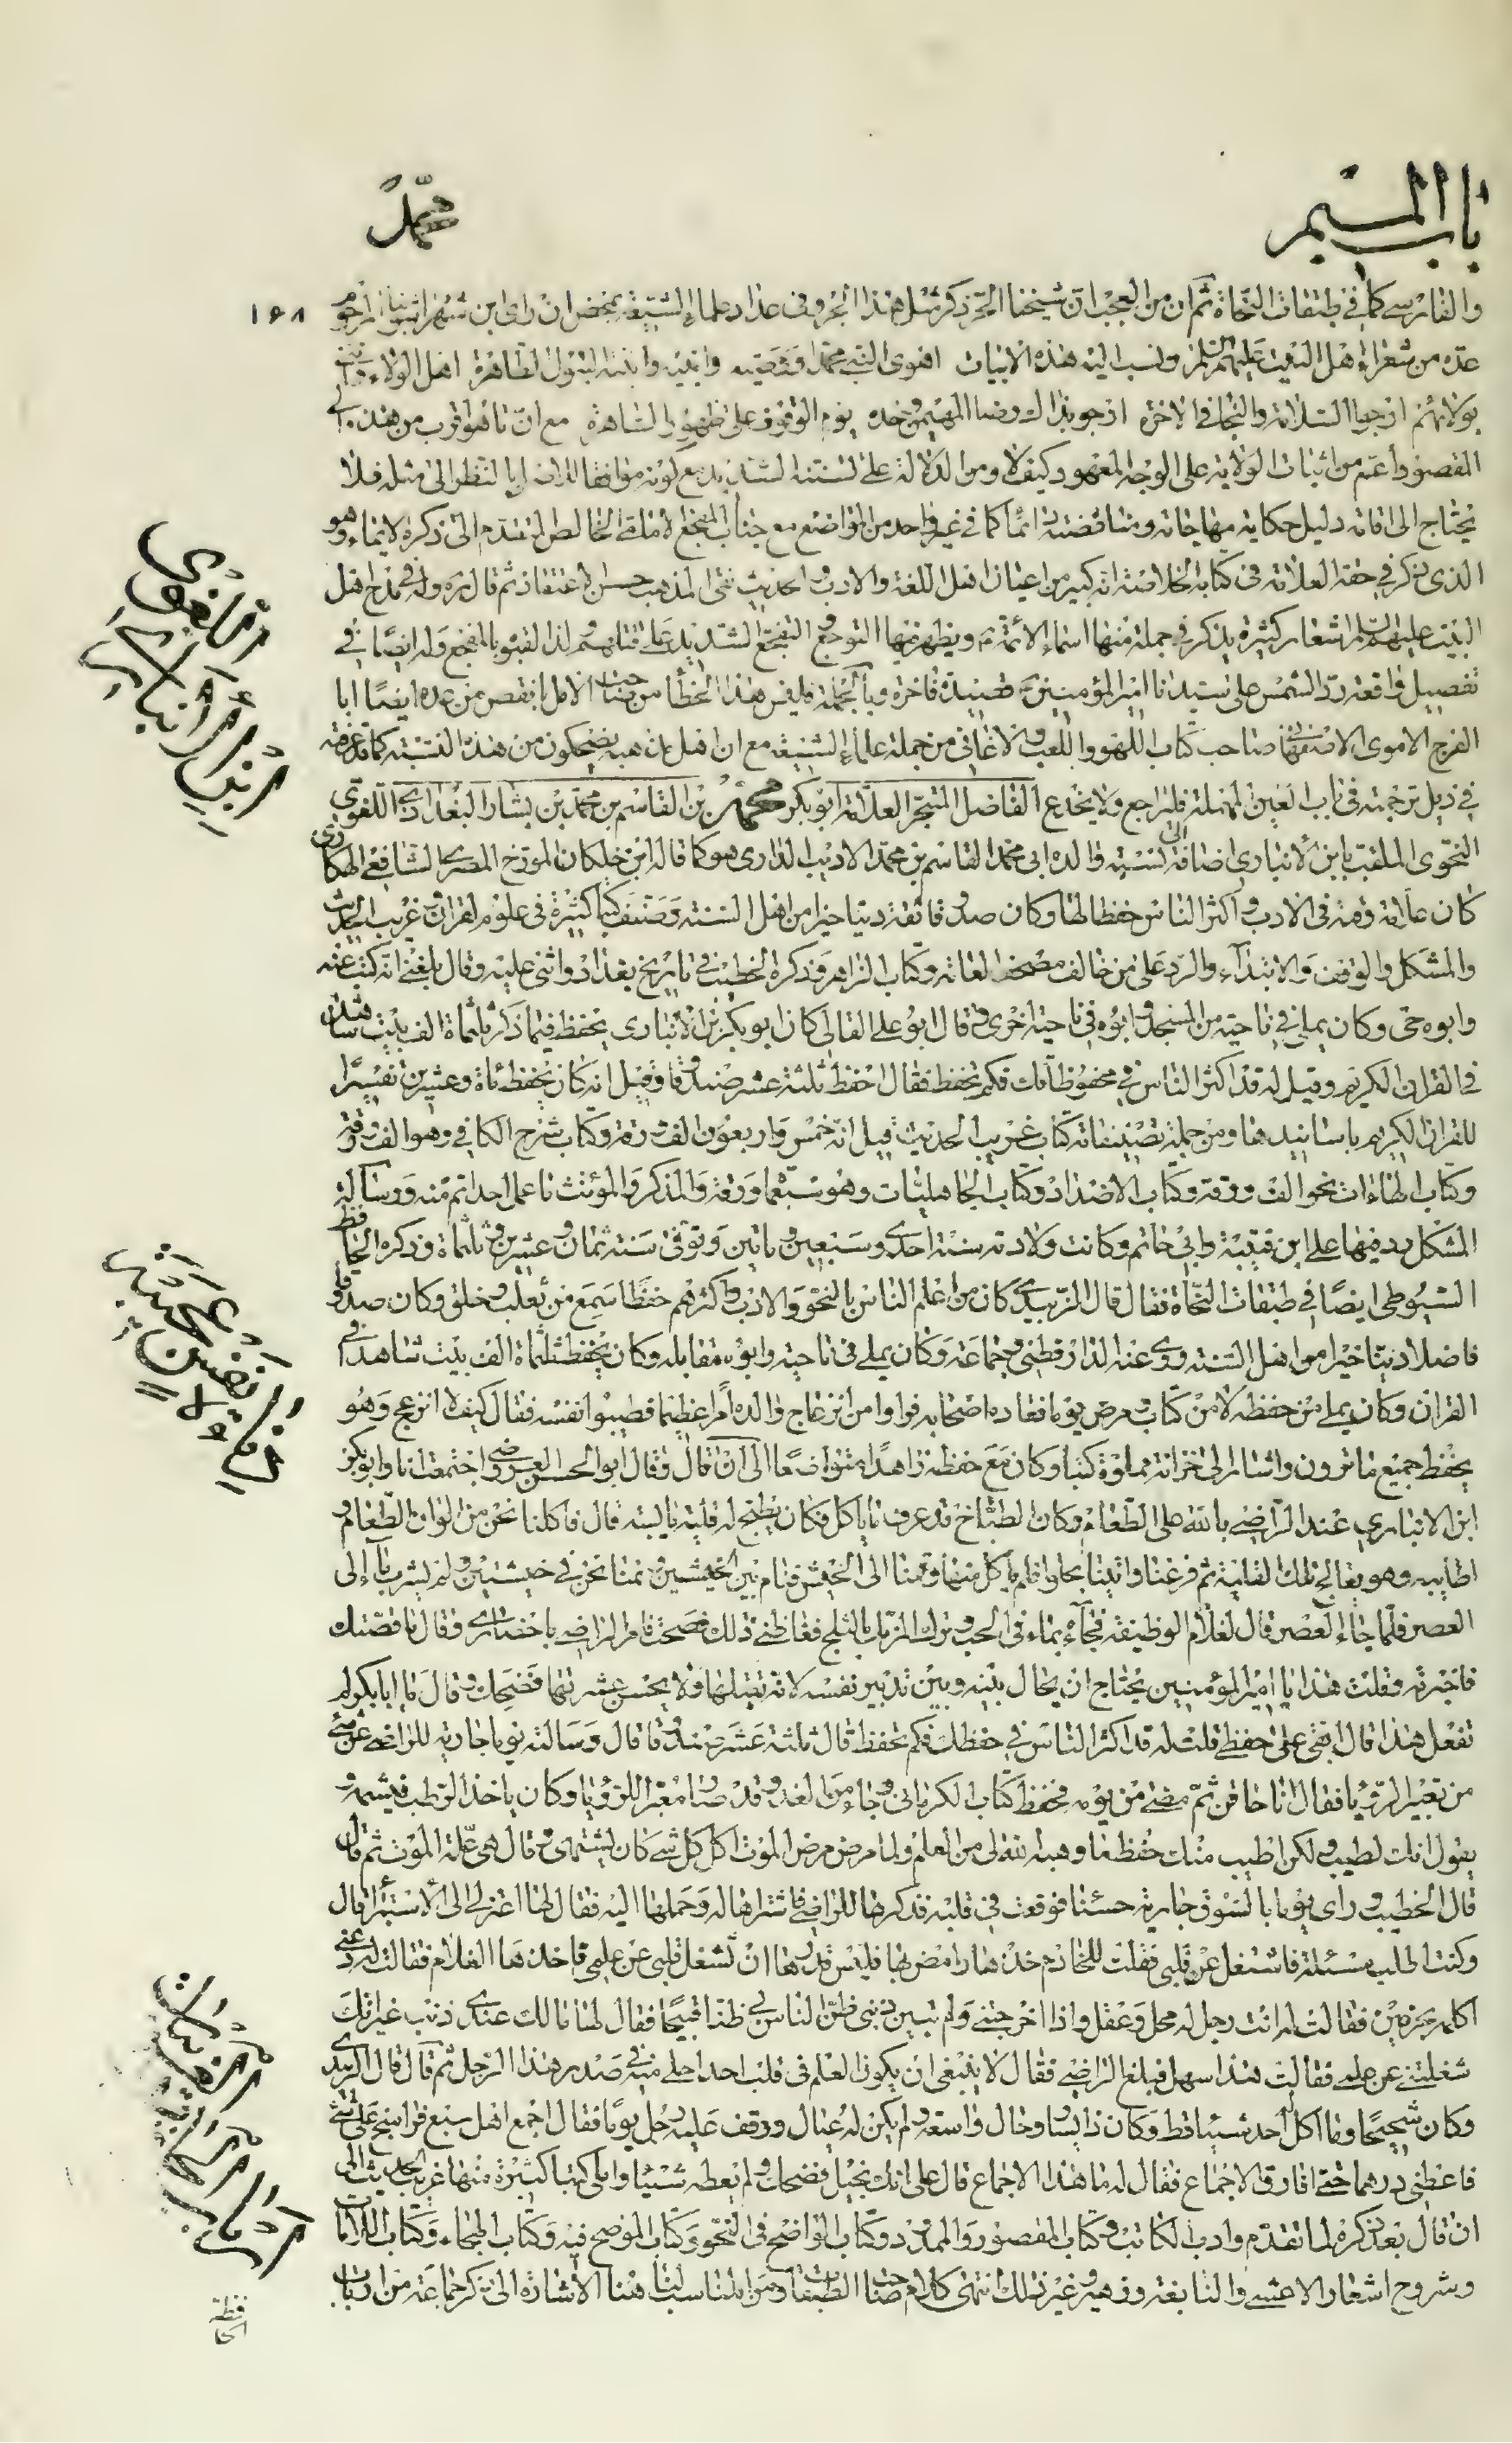 باب الميم
محمد
والفارسي كما في طبقات النحاة ثم ان من العجب ان شيخنا الحر ذكر مثل هذا الجرو في عداد علماء الشيعة بمحض ان راى ابن شهراشوب المرحوم
۱۶۸
عده من شعراء اهل البيت عليهم السلم ونسب اليه هذه الابيات اهوى النبي محمدا ووصيه وابنيه وابنته البتول الطاهرة اهل الولاء
بولائهم ارجو السلامة والنجا في الاخرة ارجو بذاك رضا المهيمن وحده يوم الوقوف على ظهور الساهرة مع ان ما هو اقرب من هذه الى
المقصود اعم من اثبات الولاية على الوجه المعهود كيف لا ومن الدلالة على تسننه الشديد مع كونه موافقا للاصل بالنظر الى مثله فلا
يحتاج الى اقامة دليل حكاية مهاجاته ومناقضته دائما كما في غير واحد من المواضع مع جناب المفجع الامامي الخالص المتقدم الى ذكره الايماء وهو
الذي ذكر في حقه العلامة في كتابه الخلاصة انه كبير من اعيان اهل اللغة والادب والحديث نقى المذهب حسن الاعتقاد ثم قال ره وله في مدح اهل
البيت عليهم السلم اشعار كثيرة يذكر في جملة منها اسماء الأئمة ويظهر فيها التوجع والتفجع الشديد على قتلهم ولذا لقبوه بالمفجع وله ايضا في
تفصيل واقعة رد الشمس على سيدنا امير المؤمنين قصيدة فاخرة وبالجملة فليس هذا الخطأ من صاحب الامل بانقص من عده ايضا ابا
الفرج الاموى الاصفهاني صاحب كتاب اللهو واللعب والاغاني من جملة علماء الشيعة مع ان اهل مذهبه يضحكون من هذه النسبة كما قد عرفته
في ذيل ترجمته في باب العين المهملة فليراجع ولا يخدع الفاضل المتبحر العلامة ابو بكر محمد بن القاسم بن محمد بن بشار البغدادي اللغوى
النحوى الملقب بابن الانباري اضافة الى نسبته والده ابي محمد القاسم بن محمد الاديب الدارى هو كما قاله ابن خلكان المورخ المصري الشافعي الهكارى
كان علامة وقته في الادب واكثر الناس حفظا لها وكان صدوقا ثقة دينا خيرا من اهل السنة وصنف كتبا كثيرة في علوم القران وغريب الحديث
والمشكل والوقف والابتداء والرد على من خالف مصحف العامة وكتاب الزاهر وذكره الخطيب في تاريخ بغداد واثنى عليه وقال بلغني انه كتب عنه
وابوه حى وكان يملي في ناحية من المسجد وابوه في ناحية اخرى وقال ابو علي القالي كان ابو بكر بن الانباري يحفظ فيما ذكر ثلثمأة الف بيت شاهد
في القران الكريم وقيل له قد اكثر الناس في محفوظاتك فكم تحفظ فقال احفظ ثلثة عشر صندوقا وقيل انه كان يحفظ مأة وعشرين تفسيرا
للقران الكريم باسانيدها ومن جملة تصنيفاته كتاب غريب الحديث قيل انه خمس واربعون الف ورقة وكتاب شرح الكافي وهو الف ورقة
وكتاب الهاءات نحو الف ورقة وكتاب الاضداد وكتاب الجاهليات وهو سبعمأة ورقة والمذكر والمؤنث ما عمل احد اتم منه ورسالة
المشكل رد فيها على ابن قتيبة وابي حاتم وكانت ولادته سنة احدى وسبعين ومأتين وتوفى سنة ثمان وعشرين وثلثمأة وذكره الحافظ
السيوطي ايضا في طبقات النحاة فقال قال الزبيدي كان من اعلم الناس بالنحو والادب واكثرهم حفظا سمع من ثعلب وخلق وكان صدوقا
فاضلا دينا خيرا من اهل السنة روى عنه الدارقطني وجماعة وكان يملي في ناحية وابوه مقابله وكان يحفظ ثلثمأة الف بيت شاهد في
القران وكان يملي من حفظه لا من كتاب ومرض يوما فعاده اصحابه فراوا من انزعاج والده امرا عظيما فطيبوا نفسه فقال كيف لا انزعج وهو
يحفظ جميع ما ترون واشار لى خزانة مملوة كتبا وكان مع حفظه زاهدا متواضعا الى ان قال وقال ابو الحسن العروضي اجتمعت انا وابو بكر
ابن الانباري عند الراضي بالله على الطعام وكان الطباخ قد عرف ما ياكل فكان يطبخ له قلية يابسة قال فاكلنا نحن من الوان الطعام و
اطايبه وهو يعالج تلك القلية ثم فرغنا واتينا بحلوا فلم ياكل منها وقمنا الى الخيش فنام بين الخيشين ونمنا نحن في خيشين ولم يشرب ماء الى
العصر فلما جاء العصر قال لغلام الوظيفة فجاءه بماء في الحب وترك المزمل بالثلج فغاظني ذلك فصحت فامر الراضي باحضاري وقال ما قصتك
فاخبرته وقلت هذا يا امير المؤمنين يحتاج ان يحال بينه وبين تدبير نفسه لانه يقتلها ولا يحسن عشرتها فضحك وقال يا ابا بكر لم
تفعل هذا قال ابقى على حفظي قلت له قد اكثر الناس في حفظك فكم تحفظ قال ثلثة عشر صندوقا قال وسالته يوما جارية للراضي عن شئ
من تعبير الرؤيا فقال انا حاقن ثم مضى من يومه فحفظ كتاب الكرماني وجاء من الغد وقد صار معبرا للرؤيا وكان ياخذ الرطب فيشمه و
يقول انك لطيب ولكن اطيب منك حفظ ما وهب الله لى من العلم ولما مرض مرض الموت اكل كل شئ كان يشتهى وقال هى علة الموت ثم قال
قال الخطيب وراى يوما بالسوق جارية حسنا فوقعت في قلبه فذكرها للراضي فاشتراها له وحملها اليه فقال لها اعتزلي الى الاستبراء قال
وكنت اطلب مسئلة فاشتغل عن قلبى فقلت للخادم خذها وامض بها فليس قدرها ان تشغل قلبي عن علمي فاخذها الغلام فقالت له دعني
اكلمه بحرفين فقالت له انت رجل له محل وعقل واذا اخرجتني ولم تبين ذنبي ظن الناس بي ظنا قبيحا فقال لها ما لك عندي ذنب غير انك
شغلتني عن علمي فقالت هذا سهل فبلغ الراضي فقال لا ينبغى ان يكون العلم في قلب احد احلى منه في صدر هذا الرجل ثم قال قال الزبيدى
وكان شحيحا وما اكل احد شيئا قط وكان ذا يسار وحال واسعة ولم يكن له عيال ووقف عليه رجل يوما فقال اجمع اهل سبع فراسخ على شئ
فاعطني درهما حتى افارق الاجماع فقال له ما هذا الاجماع قال على انك بخيل فضحك ولم يعطه شيئا واملى كتبا كثيرة منها غريب الحديث الى
ان قال بعد ذكره لما تقدم وادب الكاتب وكتاب المقصور والممدود وكتاب الواضح في النحو وكتاب الموضح فيه وكتاب الهجاء وكتاب اللامات
وشروح اشعار الاعشى والنابغة وزهير وغير ذلك انتهى كلام صاحب الطبقات ومن المناسب لنا هنا الاشارة الى ذكر جماعة من ارباب
ابن الانباري اللغوى